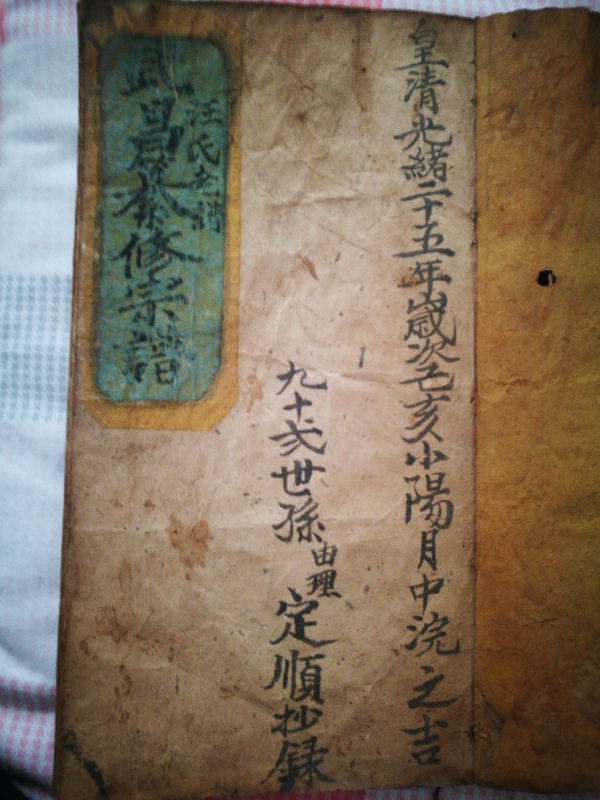 皇清光緒二十五年歲次乙亥小陽月中浣之吉
九十弍世孫由理定順抄錄
汪氏老譜
武昌房叅修宗譜